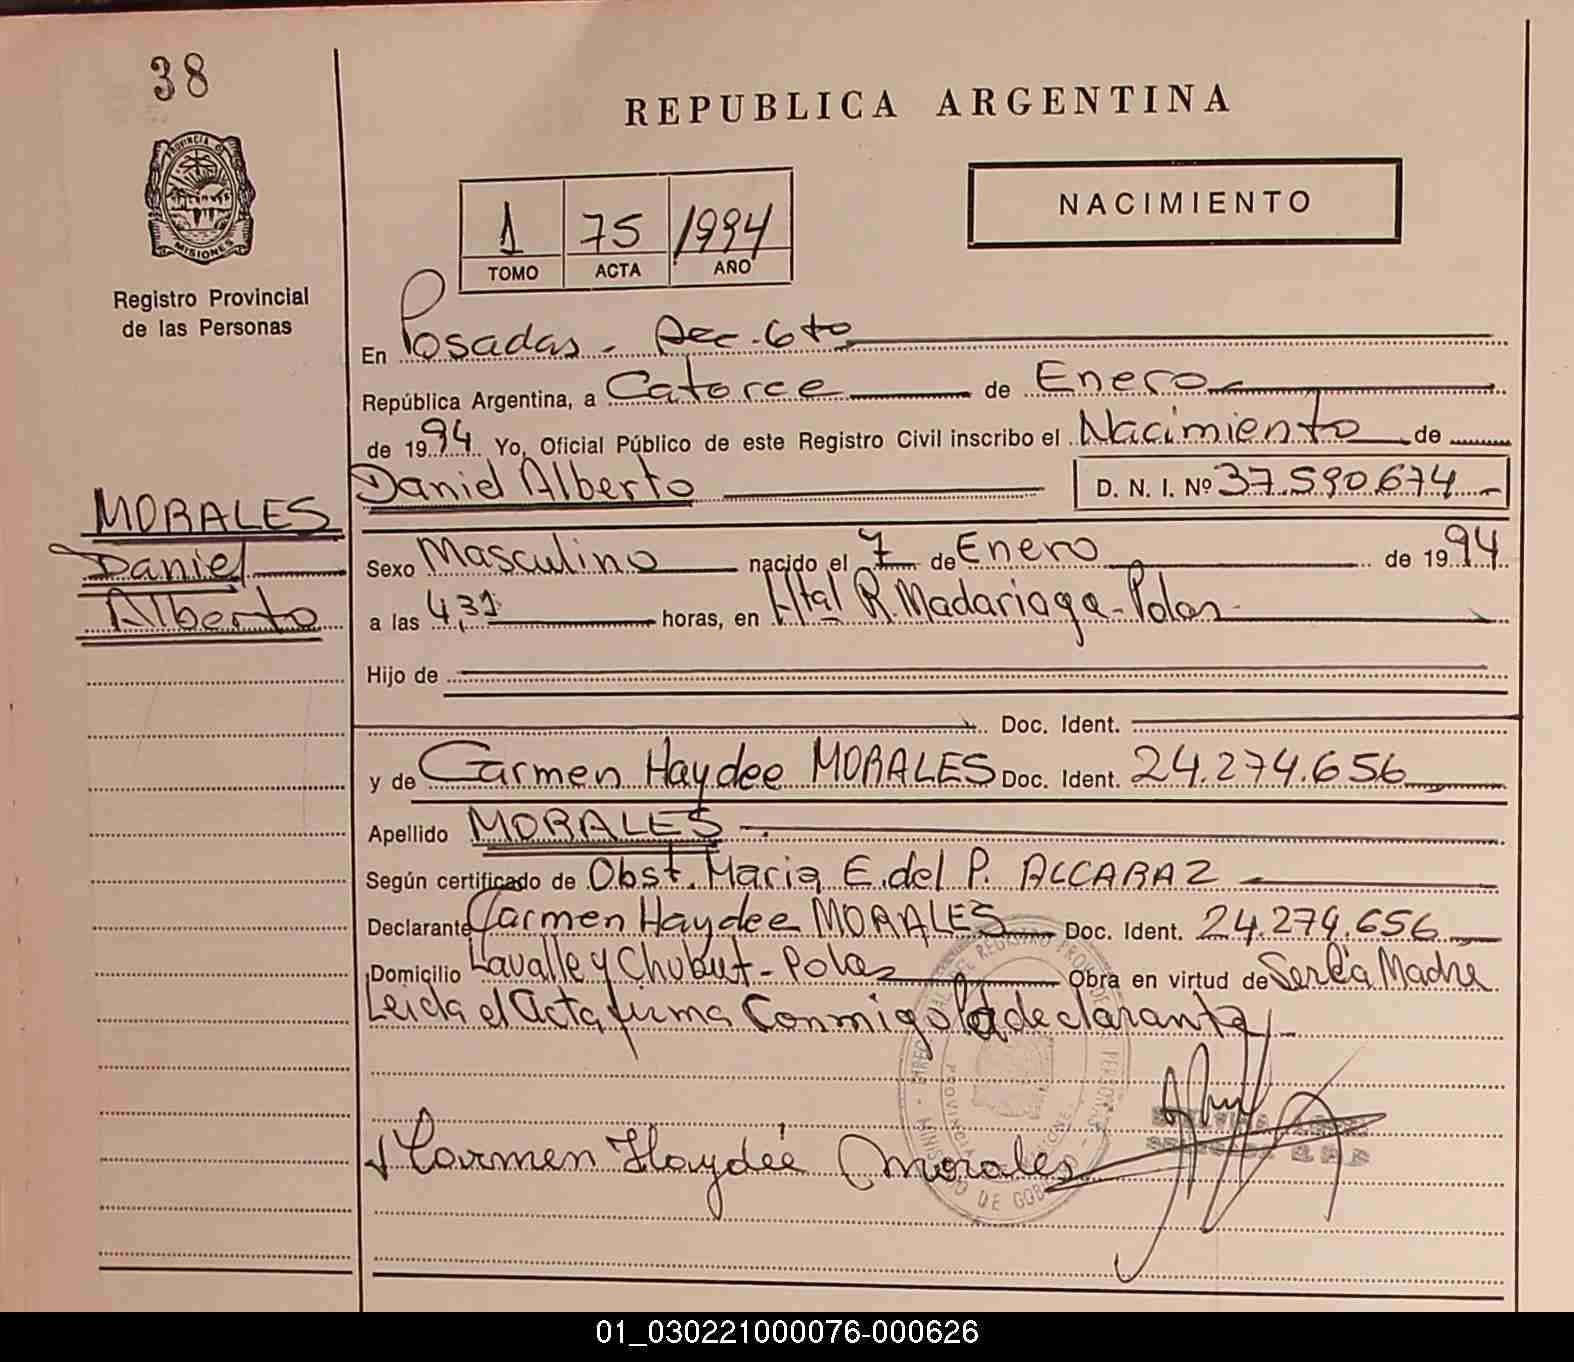 38
PROVINCIA DE
MISIONES
Registro Provincial
de las Personas
REPUBLICA ARGENTINA
NACIMIENTO
1 75 1994
TOMO ACTA AÑO
En Posadas - Sec. 6to
República Argentina, a Catorce de Enero
de 1994 Yo, Oficial Público de este Registro Civil inscribo el Nacimiento de
Daniel Alberto D. N. I. Nº 37.590.674
MORALES
Daniel
Alberto
Sexo Masculino nacido el 7 de Enero de 1994
a las 4,31 horas, en Htal R. Madariaga - Pdas
Hijo de
Doc. Ident.
y de Carmen Haydee MORALES Doc. Ident. 24.274.656
Apellido MORALES
Según certificado de Obst. Maria E. del P. ALCARAZ
Declarante Carmen Haydee MORALES Doc. Ident. 24.274.656
Domicilio Lavalle y Chubut - Pdas Obra en virtud de Ser la Madre
Leida el Acta firma Conmigo la declarante
Carmen Haydée Morales
01_030221000076-000626